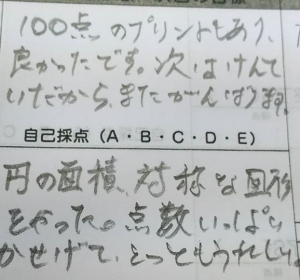 100点のプリントもあり、
良かったです。次はけんて
いだから、またがんばります。
自己採点（A・B・C・D・E）
円の面積、対称な図形
をやった。点数いっぱい
かせげて、とってもうれしい